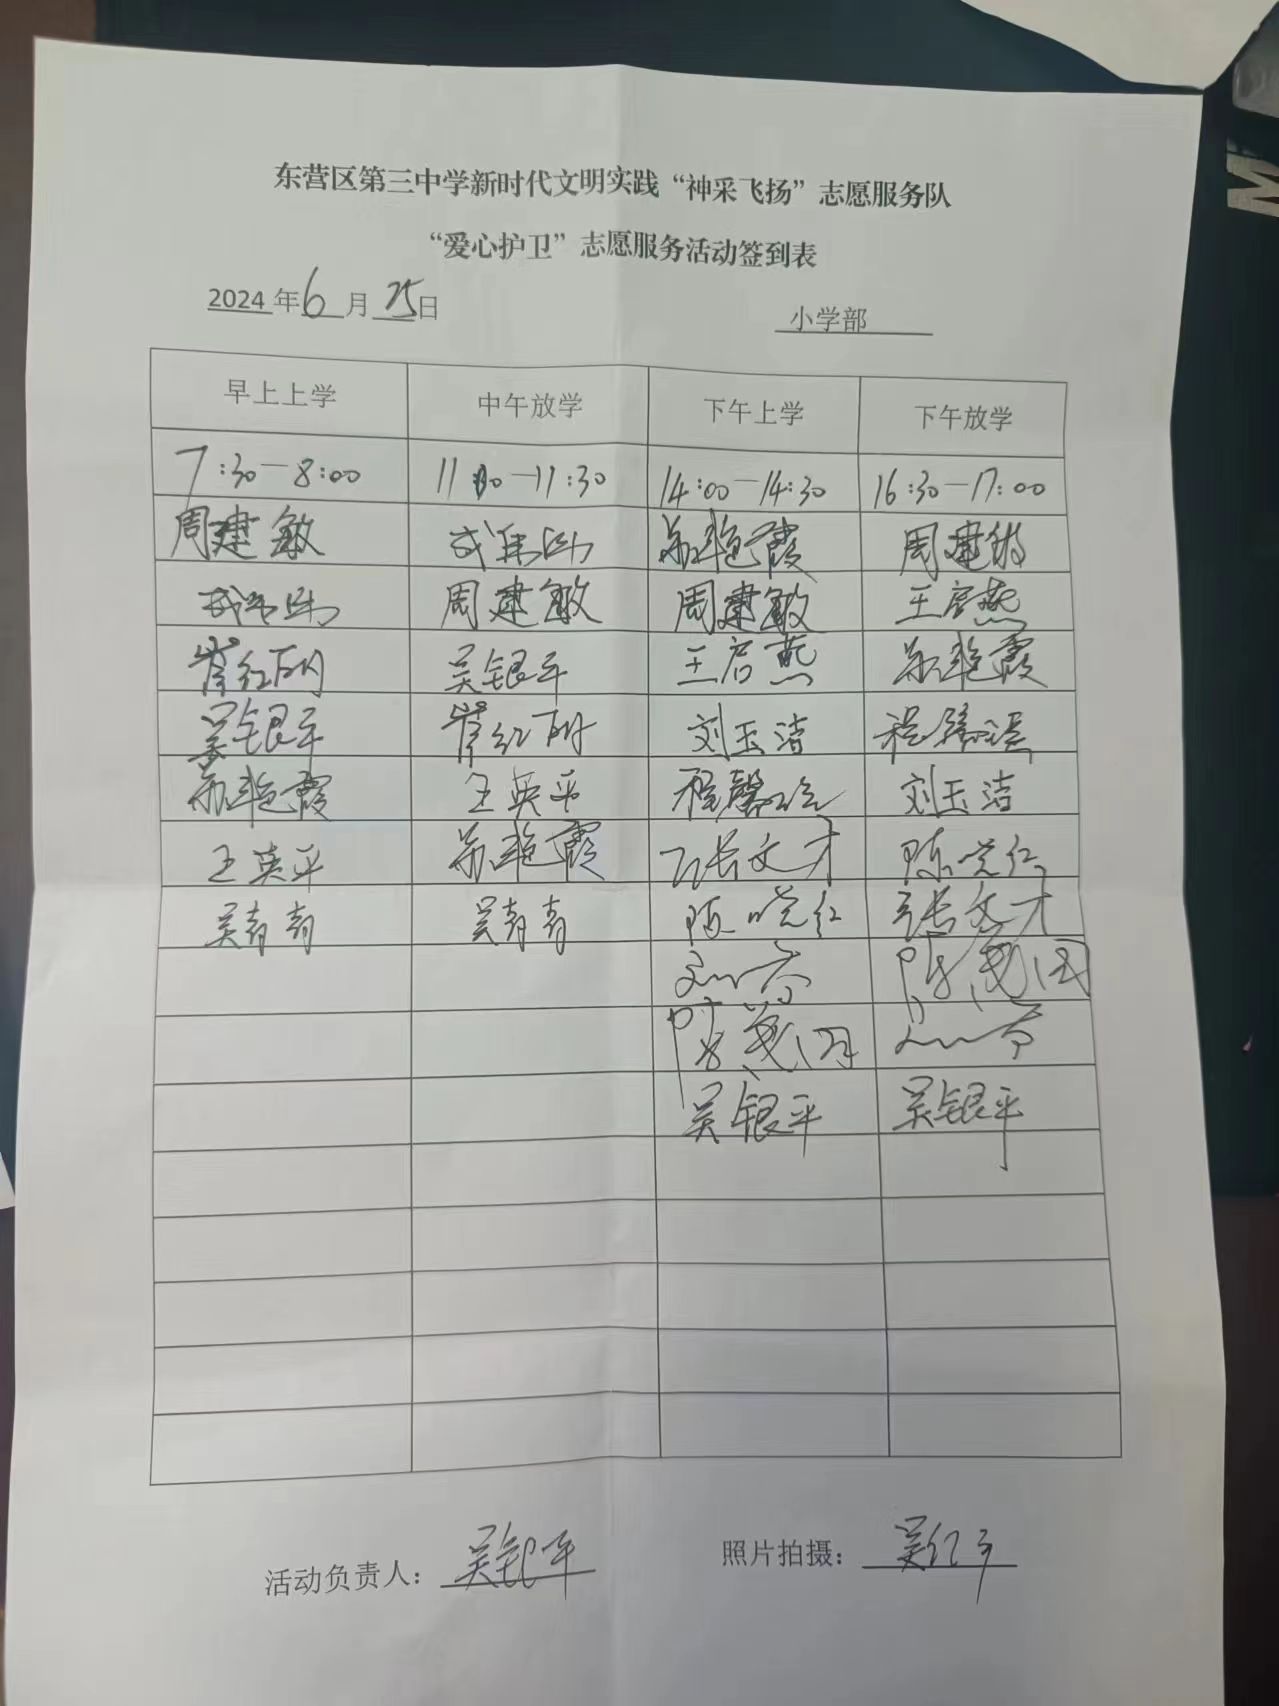 东营区第三中学新时代文明实践“神采飞扬”志愿服务队
“爱心护卫”志愿服务活动签到表
2024 年 6 月 25 日 小学部
早上上学 中午放学 下午上学 下午放学
7:30-8:00 11:00-11:30 14:00-14:30 16:30-17:00
周建敏 周建
周建敏 周建敏 王启燕
崔红 吴银平 王启燕 苏艳霞
吴银平 崔红 刘玉洁 程馨
苏艳霞 王英平 程馨 刘玉洁
王英平 苏艳霞 张文才 陈晓红
吴青青 吴青青 陈晓红 张文才
吴银平 吴银平
活动负责人： 吴银平 照片拍摄： 吴